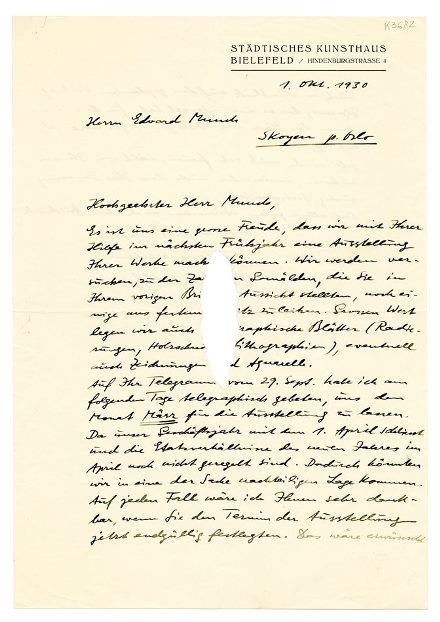 K3682
STÄDTISCHES KUNSTHAUS
BIELEFELD / HINDENBURGSTRASSE 4
1. Okt. 1930
Herrn Edvard Munch
Skoyen p. Oslo
Hochgeehrter Herr Munch,
Es ist uns eine grosse Freude, dass wir mit Ihrer
Hilfe im nächsten Frühjahr eine Ausstellung
Ihrer Werke mach können. Wir werden ver-
suchen, zu der Za Gemälden, die Sie in
Ihrem vorigen Bri Aussicht stellten, noch ei-
nige aus zu leihen. Grossen Wert
legen wir auch graphische Blätter (Radie-
rungen, Holzschn Lithographien), eventuell
auch Zeichnungen d Aquarelle.
Auf Ihr Telegramm vom 29. Sept. habe ich am
folgenden Tage telegraphisch gebeten, uns den
Monat März für die Ausstellung zu lassen.
Da unser Geschäftsjahr mit dem 1. April schliesst
und die Etatverhältnisse des neuen Jahres im
April noch nicht geregelt sind. Dadurch könnten
wir in eine der Sache nachteiligen Lage kommen.
Auf jeden Fall wäre ich Ihnen sehr dank-
bar, wenn Sie den Termin der Ausstellung
jetzt endgültig festlegten. Das wäre erwünscht